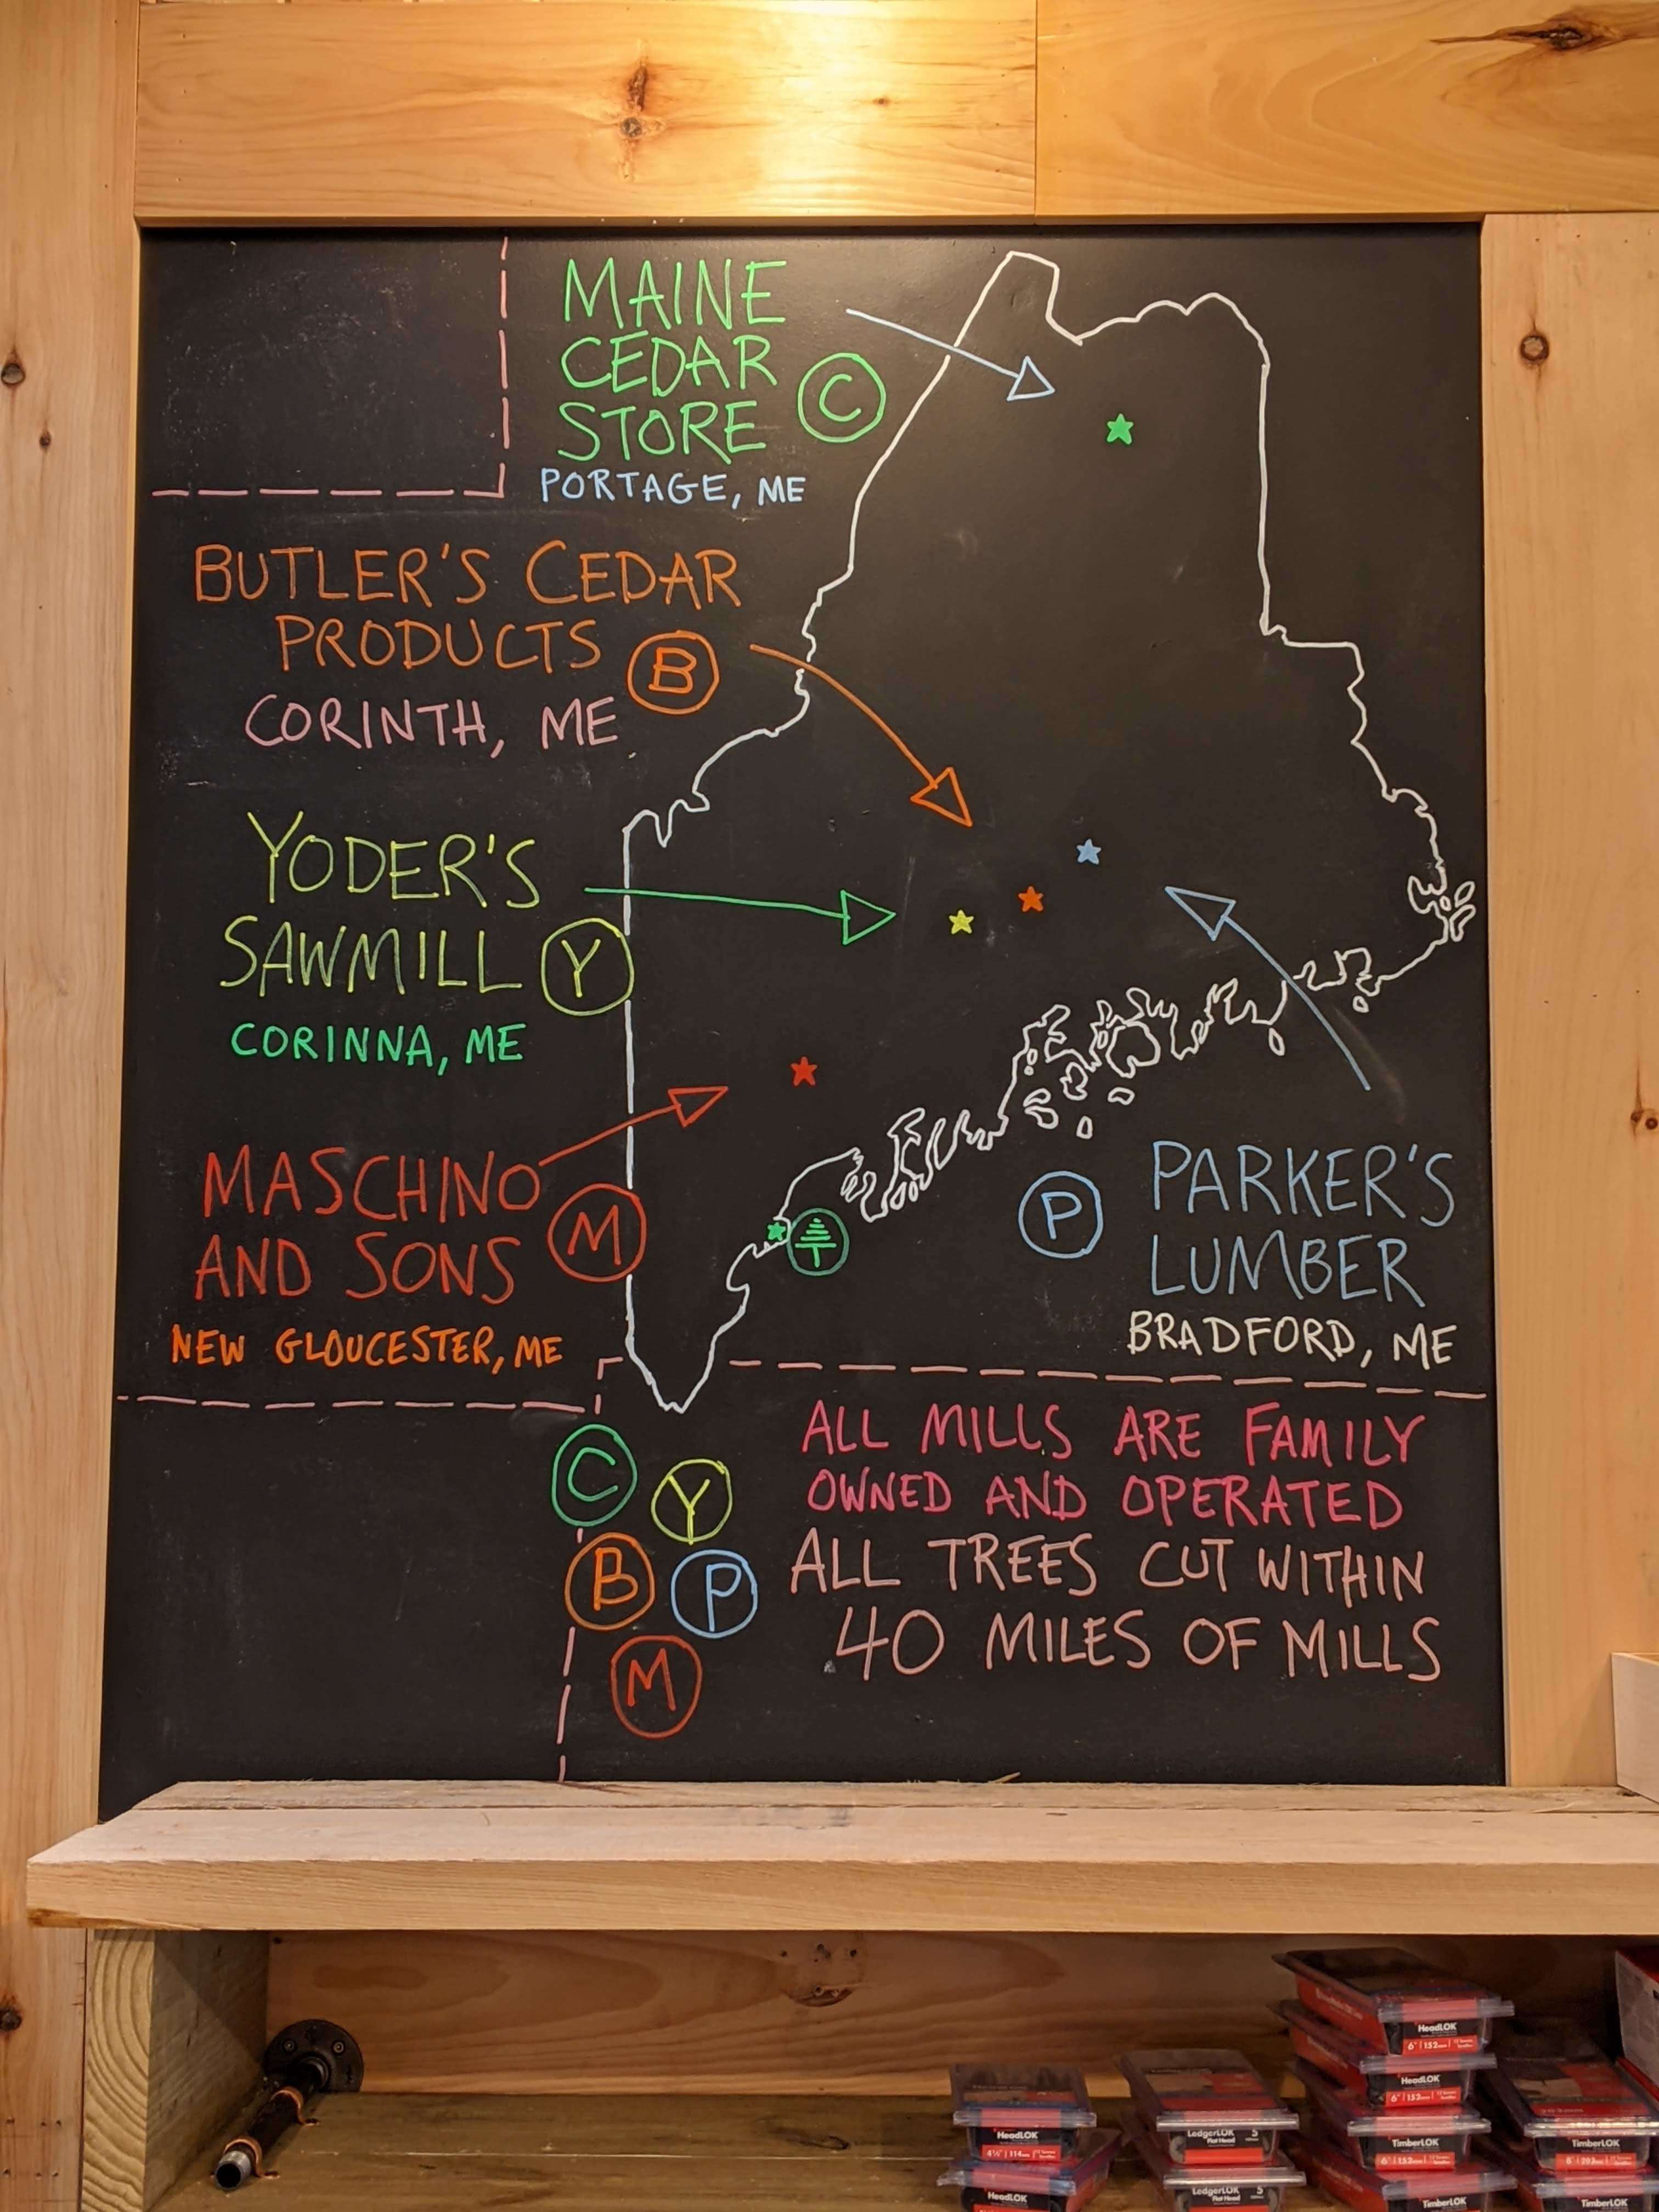 MAINE
CEDAR
STORE
C
PORTAGE, ME
BUTLER'S CEDAR
PRODUCTS
B
CORINTH, ME
YODER'S
SAWMILL
Y
CORINNA, ME
MASCHINO
AND SONS
M
NEW GLOUCESTER, ME
P
PARKER'S
LUMBER
BRADFORD, ME
C
Y
B
P
M
ALL MILLS ARE FAMILY
OWNED AND OPERATED
ALL TREES CUT WITHIN
40 MILES OF MILLS
HeadLOK
6" 152mm
HeadLOK
6" 152mm
HeadLOK
4½" 114mm
LedgerLOK
Flat Head
5
TimberLOK
6" 152mm
TimberLOK
8" 203mm
HeadLOK
LedgerLOK
Flat Head
5
TimberLOK
TimberLOK